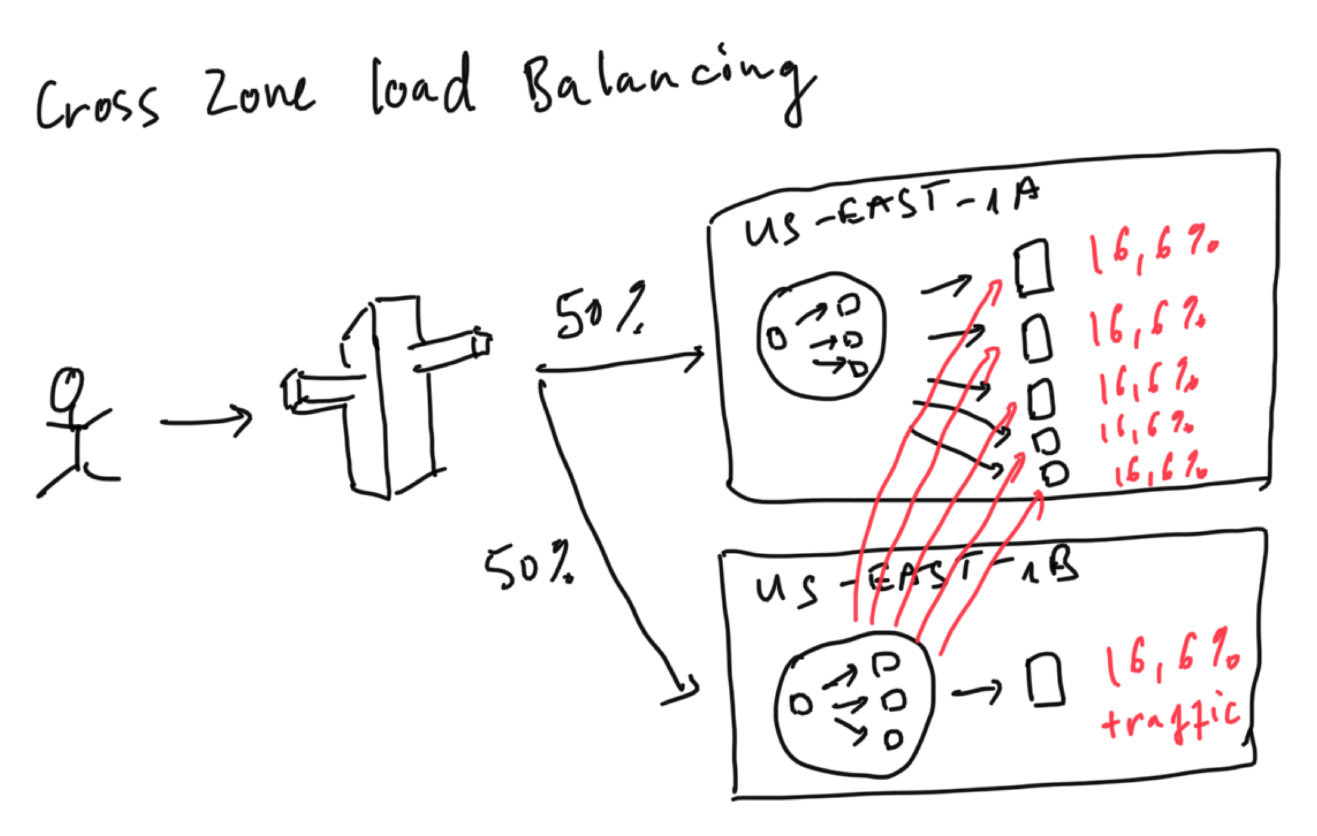 Cross Zone load Balancing
US-EAST-1A
16,6%
50%
16,6%
16,6%
16,6%
16,6%
50%
US-EAST-1B
16,6%
traffic